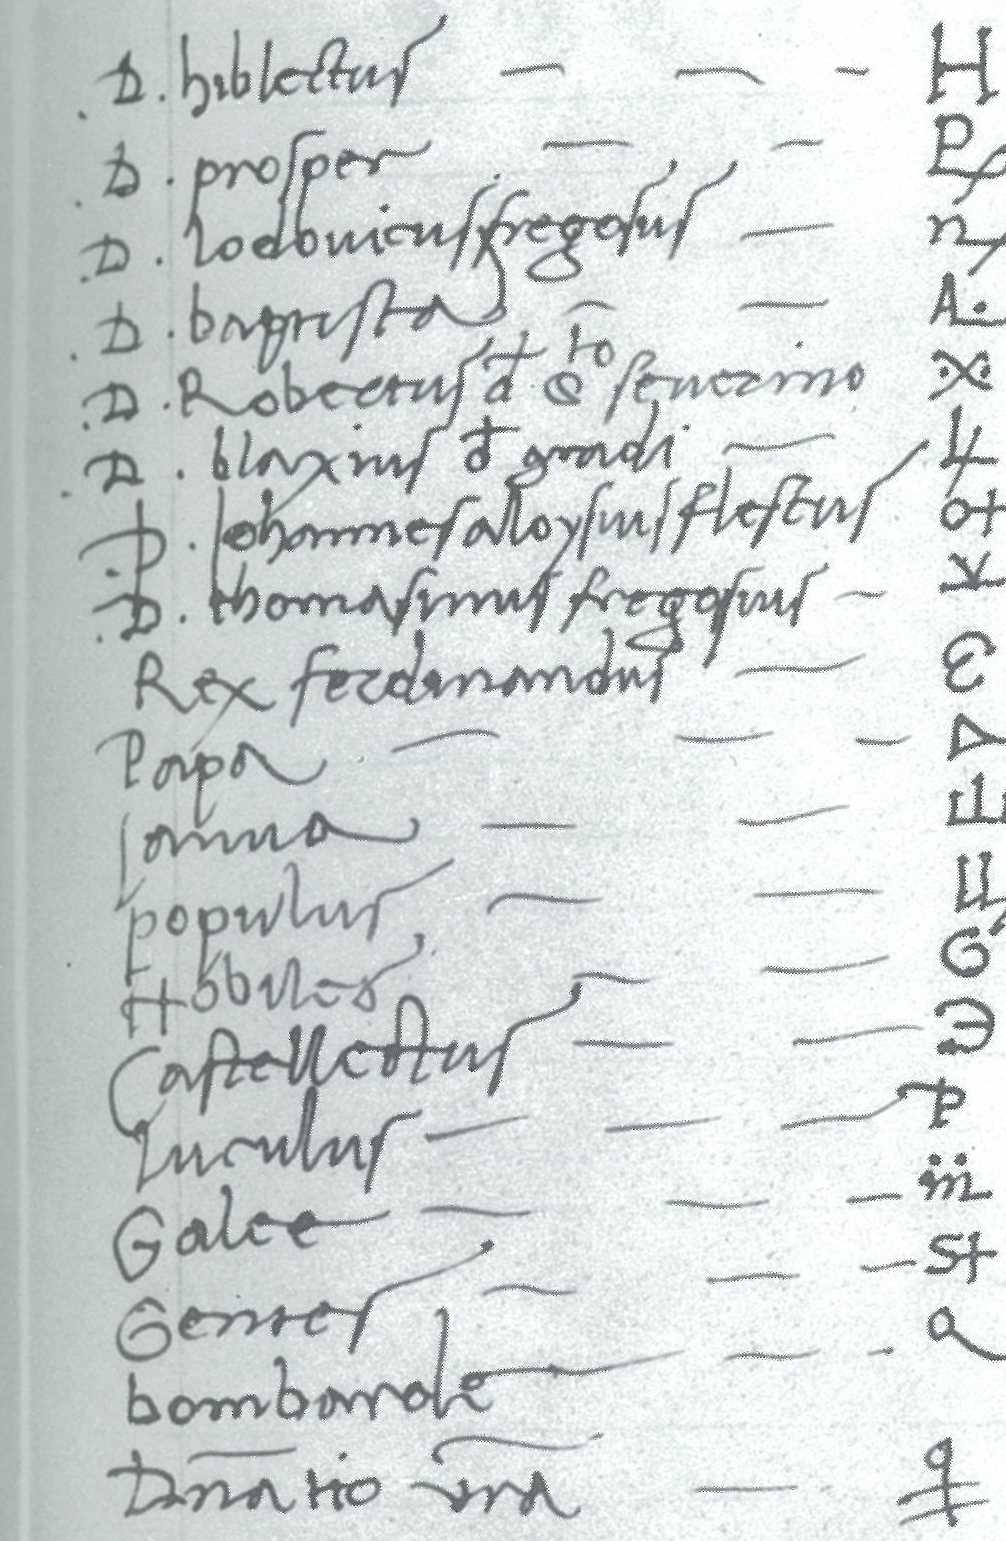 .D. hiblettus — — — H
.D. prosper — — P
.D. lodouicus fregosus — n
.D. baptista — — A.
.D. Robertus d sto seuerino
.D. blaxius d gradi — 4
.D. Johannes aloysius flestus o+
.D. thomasinus fregosius — K
Rex ferdinandus — E
Papa — — —
Janua — — E
populus — —
Nobiles — — G
Castelletus — — Э
luculus — — — P
Galee — — — m̈
Gentes — — — St
bombarde — — —
Dnatio vra — q